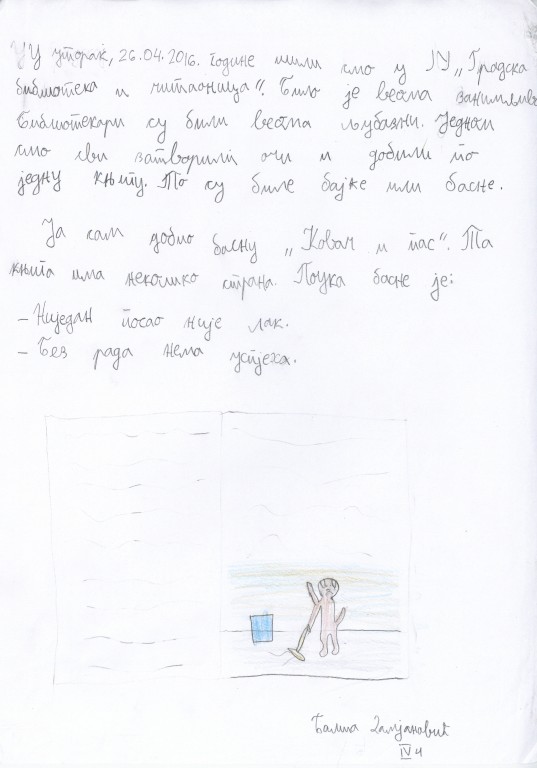 У уторак, 26.04.2016. године ишли смо у ЈУ „Градска
библиотека и читаоница“. Било је веома занимљиво
Библиотекари су били веома љубазни. Једном
смо сви затворили очи и добили по
једну књигу. То су биле бајке или басне.
Ја сам добио басну „Ковач и пас“. Та
књига има неколико страна. Поука басне је:
- Ниједан посао није лак.
- Без рада нема успјеха.
IV 4